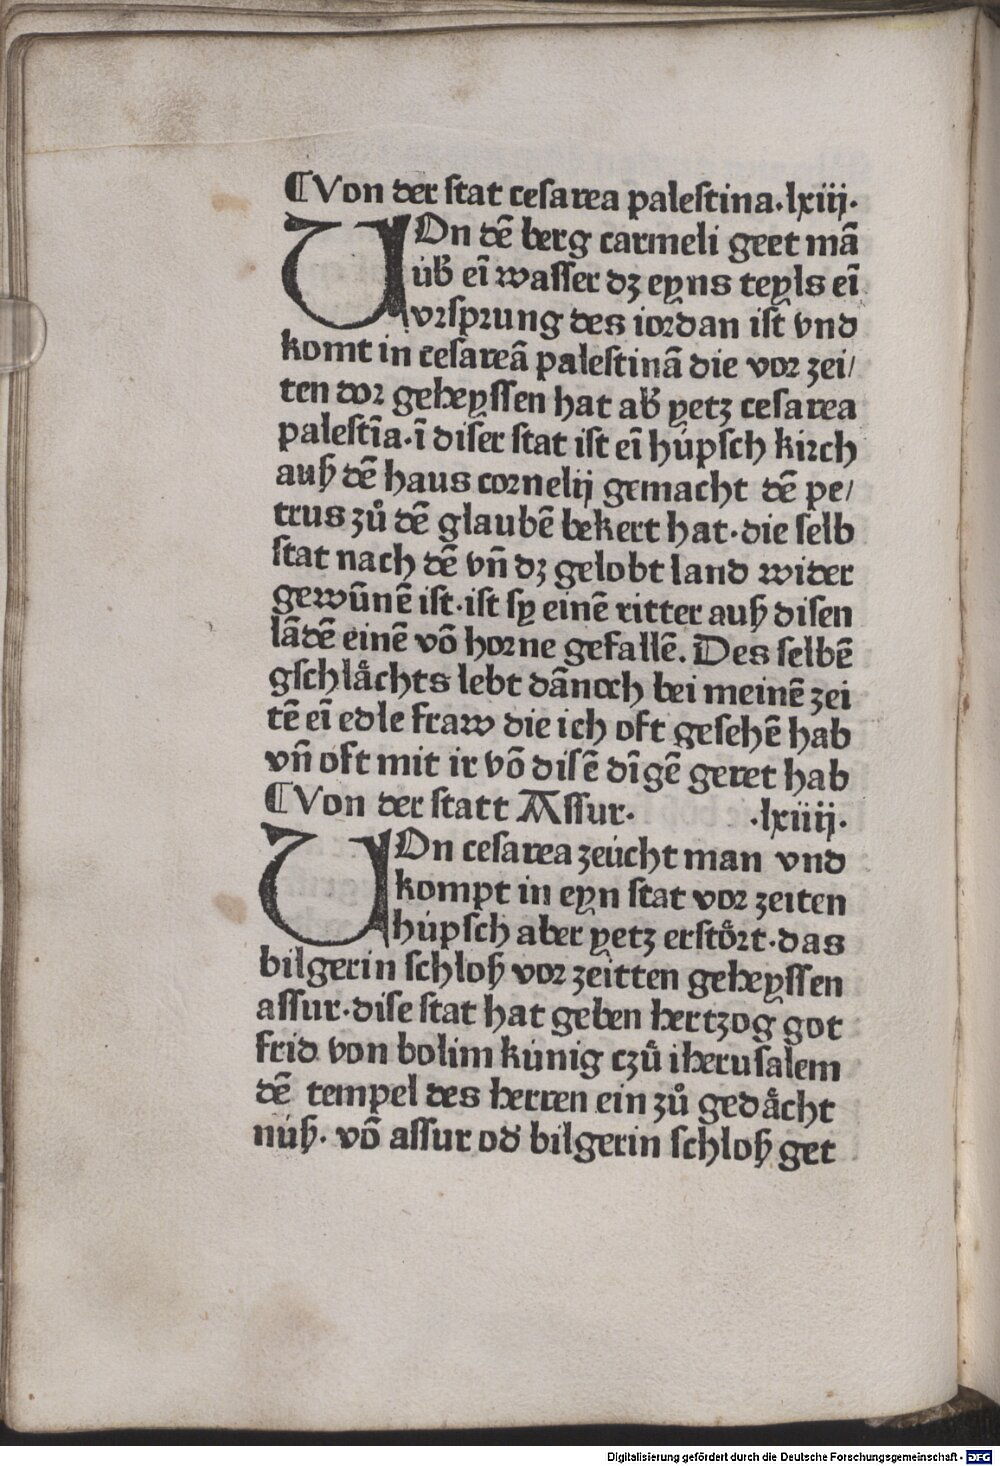 ⸿Von der ſtat ceſarea paleſtina·lxiij·
VOn dē berg carmeli geet mā
úb̓ eī waſſer dꝫ eyns teyls eī
vrſprung des iordan iſt vnd
komt in ceſareā paleſtinā die vor zei/
ten dor geheyſſen hat ab̓ yetz ceſarea
paleſtīa·ī diſer ſtat iſt eī húpſch kirch
auß dē haus cornelij gemacht dē pe/
trus zů dē glaubē bekert hat·die ſelb
ſtat nach dē vn̄ dꝫ gelobt land wider
gewūnē iſt·iſt ſy einē ritter auß diſen
lādē einē vō horne gefallē. Des ſelbē
gſchlaͤchts lebt dānoch bei meinē zei
tē eī edle fraw die ich oft geſehē hab
vn̄ oft mit ir vō diſē dīgē geret hab
⸿Von der ſtatt Aſſur· ·lxiiij·
VOn ceſarea zeúcht man vnd
kompt in eyn ſtat vor zeiten
húpſch aber yetz erſtoͤrt·das
bilgerin ſchloß vor zeitten geheyſſen
aſſur·diſe ſtat hat geben hertzog got
frid von bolim kúnig czů iheruſalem
dē tempel des herren ein zů gedaͤcht
núß· vō aſſur od̓ bilgerin ſchloß get
Digitalisierung gefördert durch die Deutsche Forschungsgemeinschaft - DFG